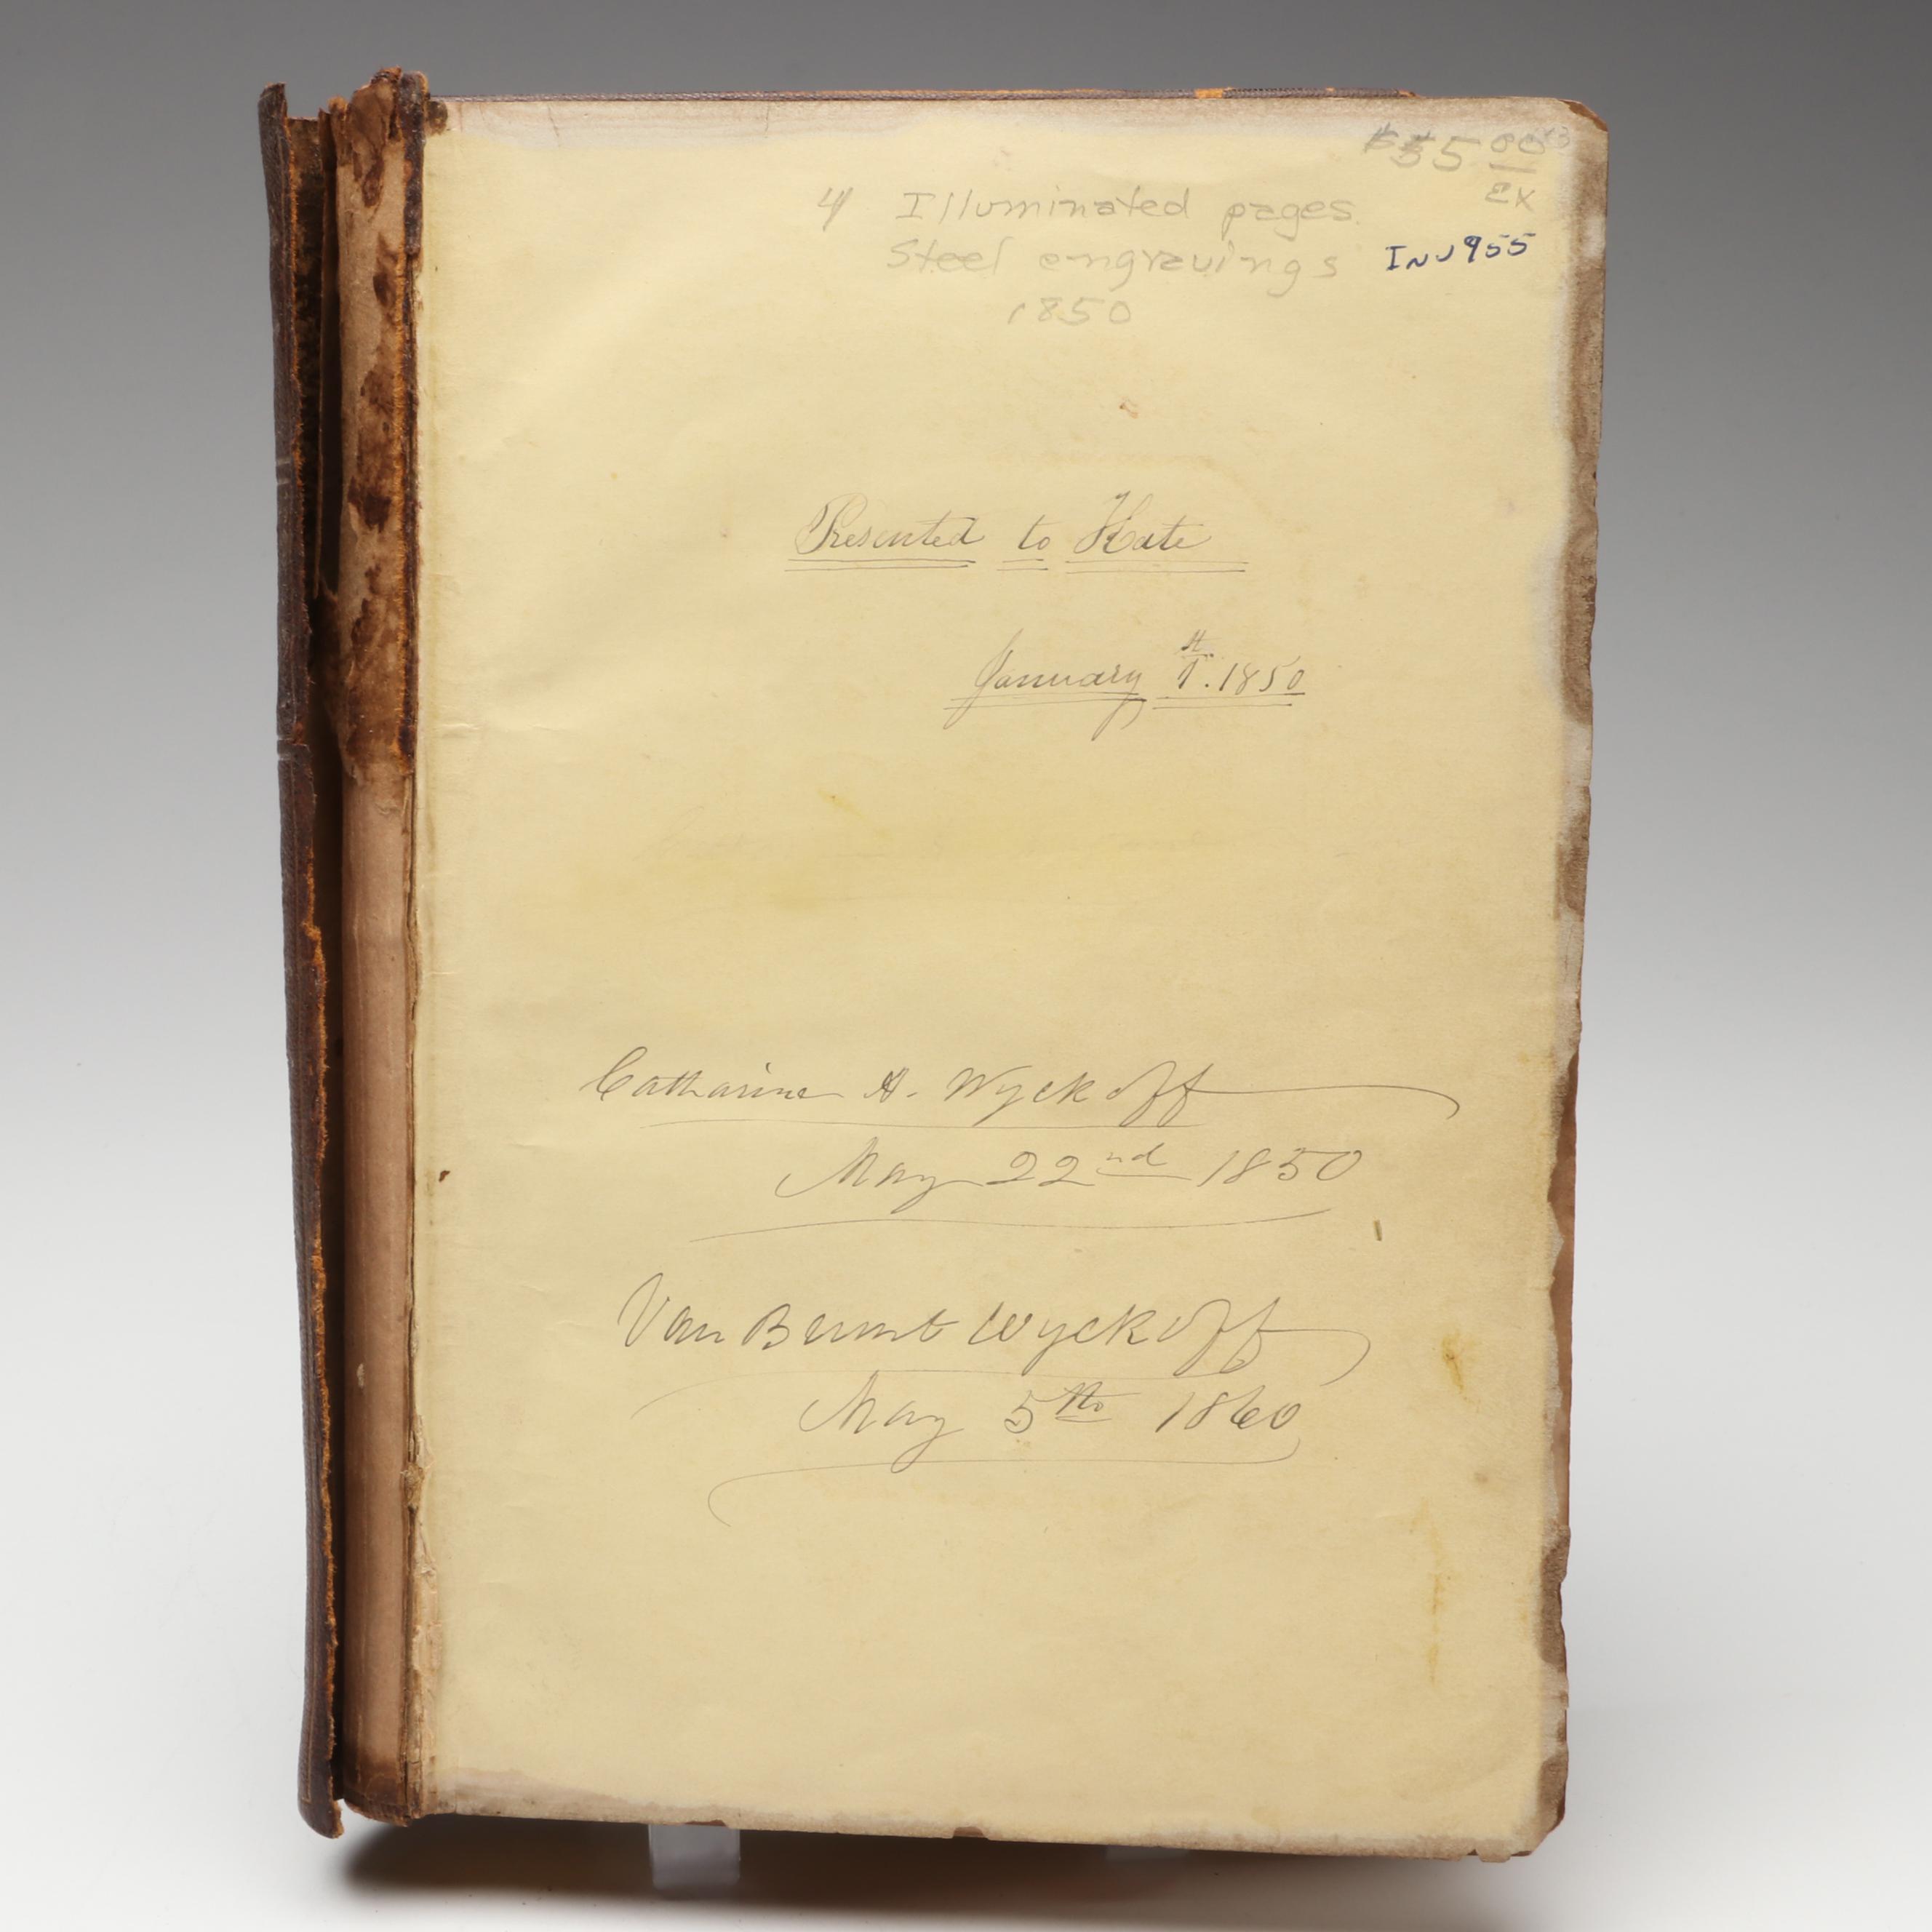 $35 00
EX
4 Illuminated pages
Steel engravings
INV955
1850
Presented to Kate
January 1st. 1850
Catharine A. Wyckoff
May 22nd 1850
Van Brunt Wyckoff
May 5th 1860